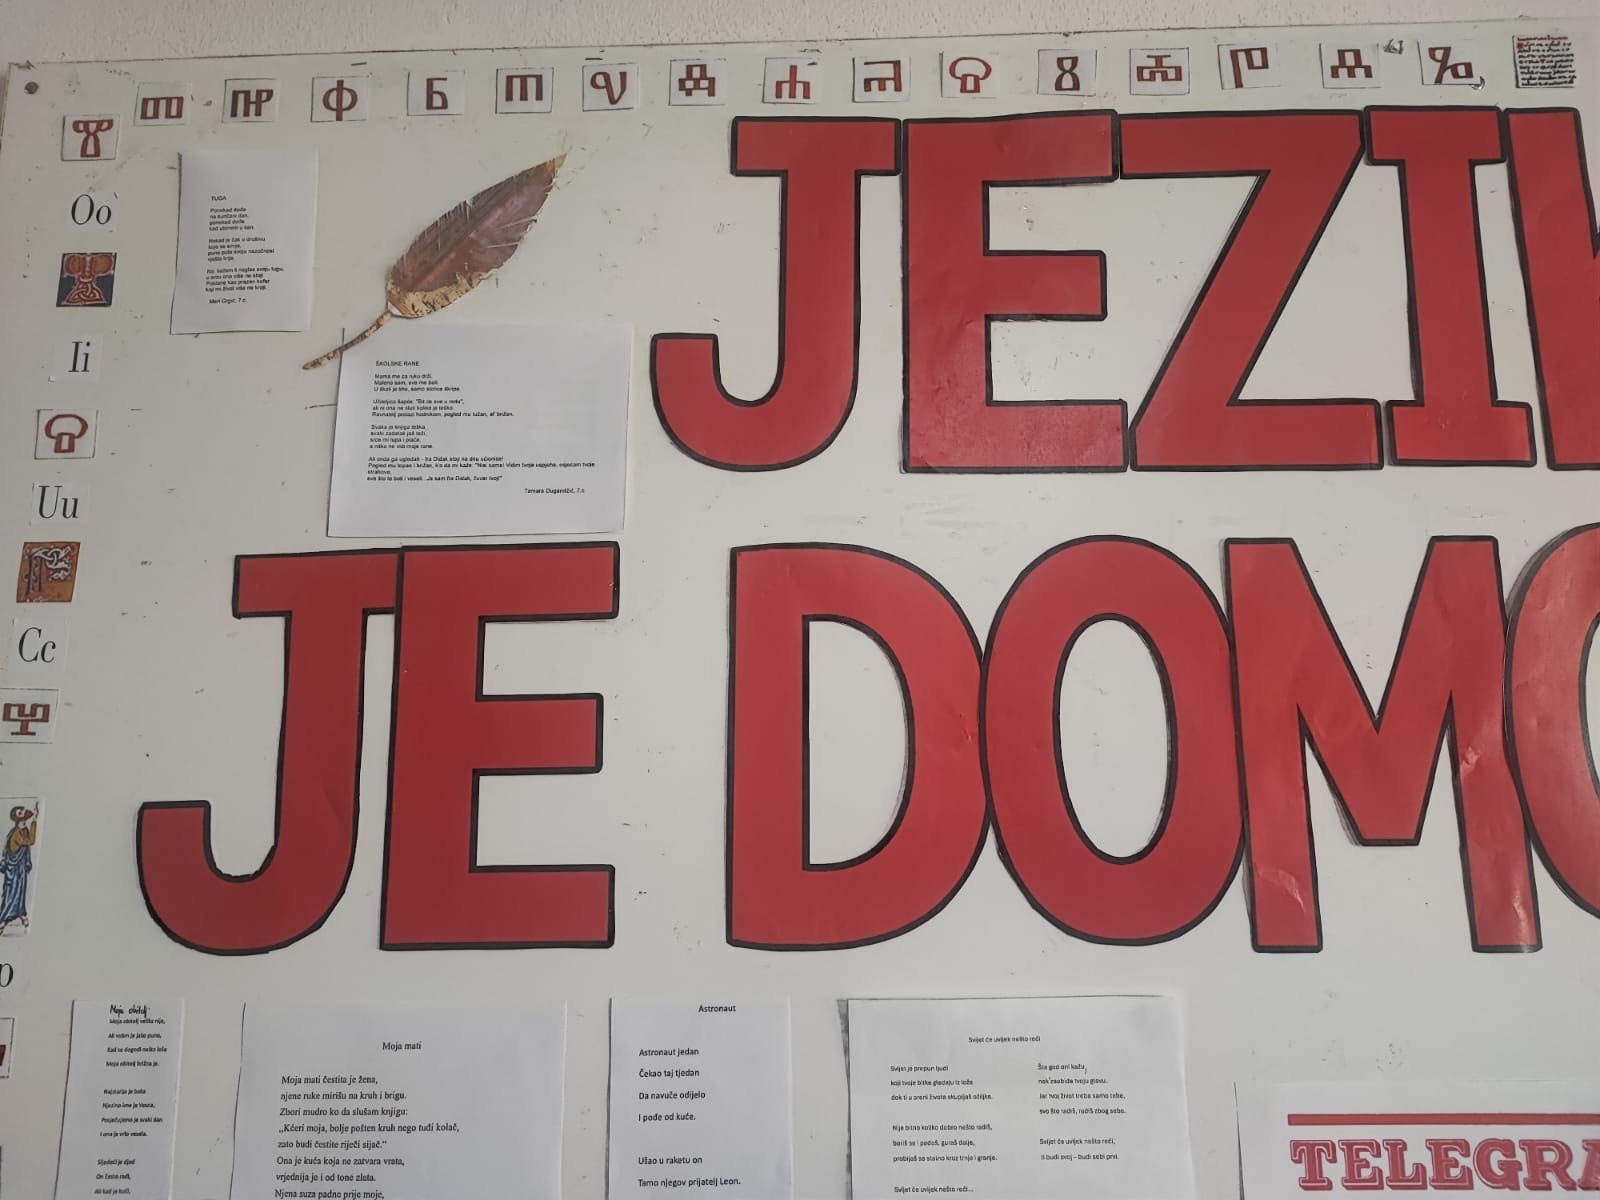 Oo
Ii
Uu
Cc
JEZI
JE DOMO
TUGA
Ponekad dođe
na sunčani dan,
ponekad dođe
kad utonem u san.
Nekad je čak u društvu
koje se smije,
No, kažem ti naglas svoju tugu,
u srcu ona više ne stoji
Postane kao prazan kofer
koji mi život više ne kroji.
Meri Grgić, 7.c
ŠKOLSKE RANE
Mama me za ruku drži.
Malena sam, sve me boli.
U školi je tiho, samo stolice škripe.
Učiteljica šapće: "Bit će sve u redu",
ali ni ona ne sluti koliko je teško.
Ravnatelj prolazi hodnikom, pogled mu tužan, al' brižan.
Svaka je knjiga teška,
svaki zadatak još teži,
srce mi lupa i plače,
a nitko ne vidi moje rane.
Ali onda ga ugledah - fra Didak stoji na dnu učionice!
Pogled mu topao i brižan, k'o da mi kaže: "Nisi sama! Vidim tvoje uspjehe, osjećam tvoje
strahove,
sve što te boli i veseli. Ja sam fra Didak, čuvar tvoj!"
Tamara Dugandžić, 7.c
Moja obitelj
Moja obitelj velika nije,
Ali volim je jako puno,
Kad se dogodi nešto loše
Moja obitelj brižna je.
Najstarija je baka
Njezino ime je Vesna,
Posjećujemo je svaki dan
I ona je vrlo vesela.
Sljedeći je djed
On često radi,
Ali kad je kući,
Moja mati
Moja mati čestita je žena,
njene ruke mirišu na kruh i brigu.
Zbori mudro ko da slušam knjigu:
„Kćeri moja, bolje pošten kruh nego tuđi kolač,
zato budi čestite riječi sijač.“
Ona je kuća koja ne zatvara vrata,
vrjednija je i od tone zlata.
Njena suza padne prije moje,
Astronaut
Astronaut jedan
Čekao taj tjedan
Da navuče odijelo
I pođe od kuće.
Ušao u raketu on
Tamo njegov prijatelj Leon.
Svijet će uvijek nešto reći
Svijet je prepun ljudi
koji tvoje bitke gledaju iz lože
dok ti u areni života skupljaš ožiljke.
Nije bitno koliko dobro nešto radiš,
boriš se i padaš, guraš dalje,
probijaš se stalno kroz trnje i granje.
Svijet će uvijek nešto reći...
Što god oni kažu,
nek' zaobiđe tvoju glavu.
Jer tvoj život treba samo tebe,
sve što radiš, radiš zbog sebe.
Svijet će uvijek nešto reći,
ti budi svoj – budi sebi prvi.
TELEGRA